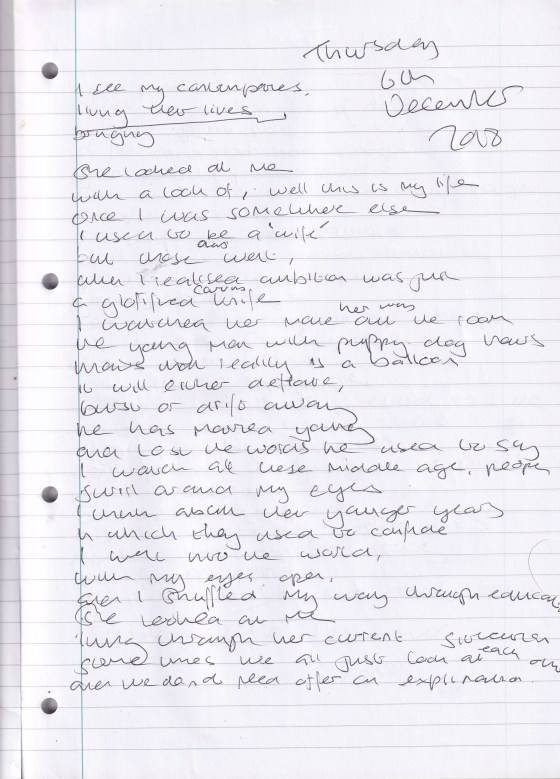 Thursday
6th
December
2008
I see my contempories,
living their lives,
bringing
She looked at me
with a look of, well this is my life
once I was somewhere else
I used to be a 'wife'
but those days went,
when I realised ambition was just
a glorified carving knife
I watched her make her way out the room
the young man with puppy dog hours
knows now reality is a balloon
it will either deflate,
burst or drift away
he has married young
and lost the words he used to say
I watch all these middle age, people
swirl around my eyes
I think about their younger years
in which they used to confide
I went into the world,
with my eyes open,
and I shuffled my way through
She looked at me
living through her current situation
sometimes we all just look at each
and we don't need offer an explination